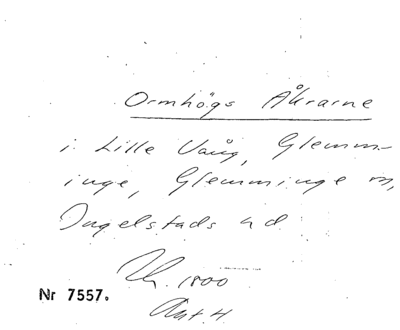 Ormhögs Åkrarne
i Lille Vång, Glemm-
inge, Glemminge sn,
Ingelstads hd
1800
Nr 7557.
Akt. 4.